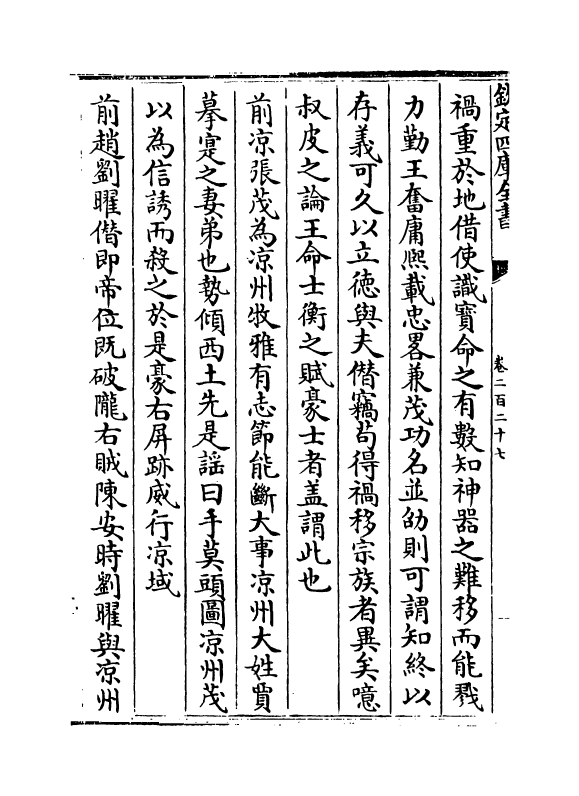 欽定四庫全書
卷二百二十七
禍重於地借使識寶命之有數知神器之難移而能戮
力勤王奮庸熙載忠畧兼茂功名並劭則可謂知終以
存義可久以立徳與夫僭竊苟得禍移宗族者異矣噫
叔皮之論王命士衡之賦豪士者盖謂此也
前凉張茂為凉州牧雅有志節能斷大事凉州大姓賈
摹寔之妻弟也勢傾西土先是謡曰手莫頭圖凉州茂
以為信誘而殺之於是豪右屏跡威行凉域
前趙劉曜僭即帝位既破隴右賊陳安時劉曜與凉州